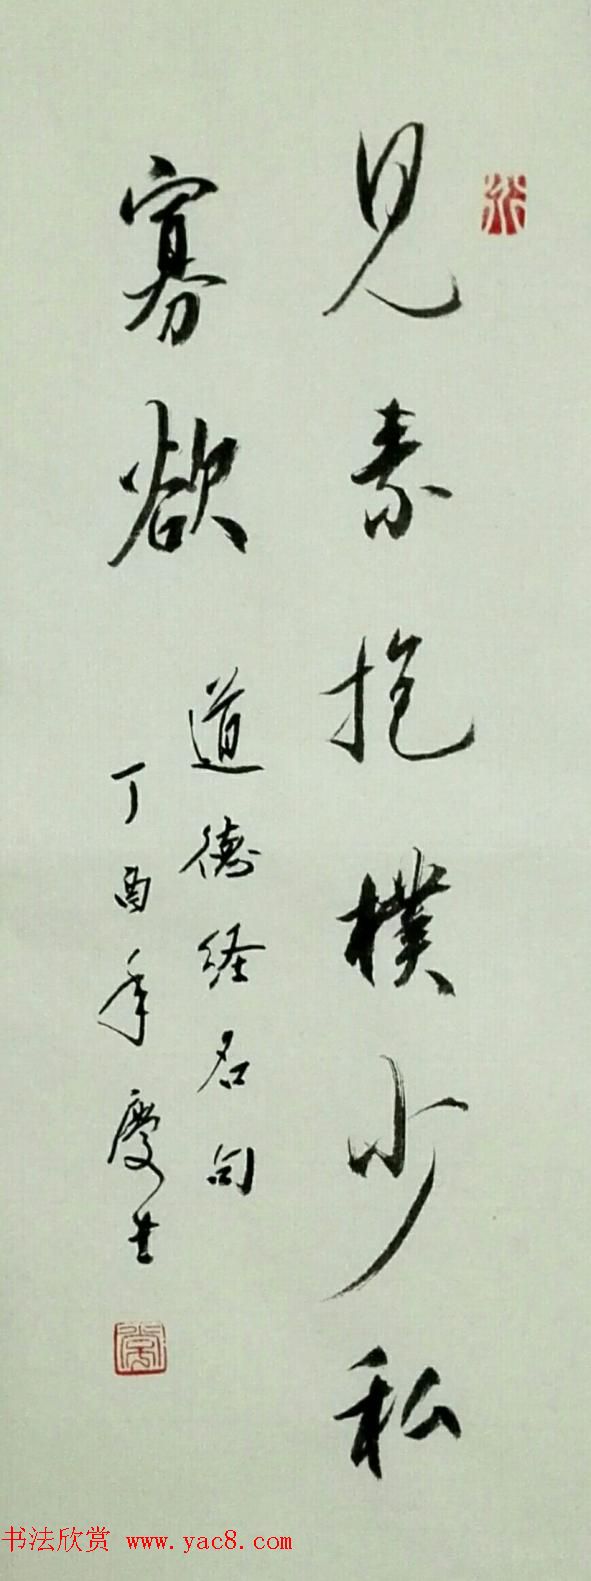 見素抱樸少私
寡欲
道德経名句
丁酉年慶生
书法欣赏 www.yac8.com